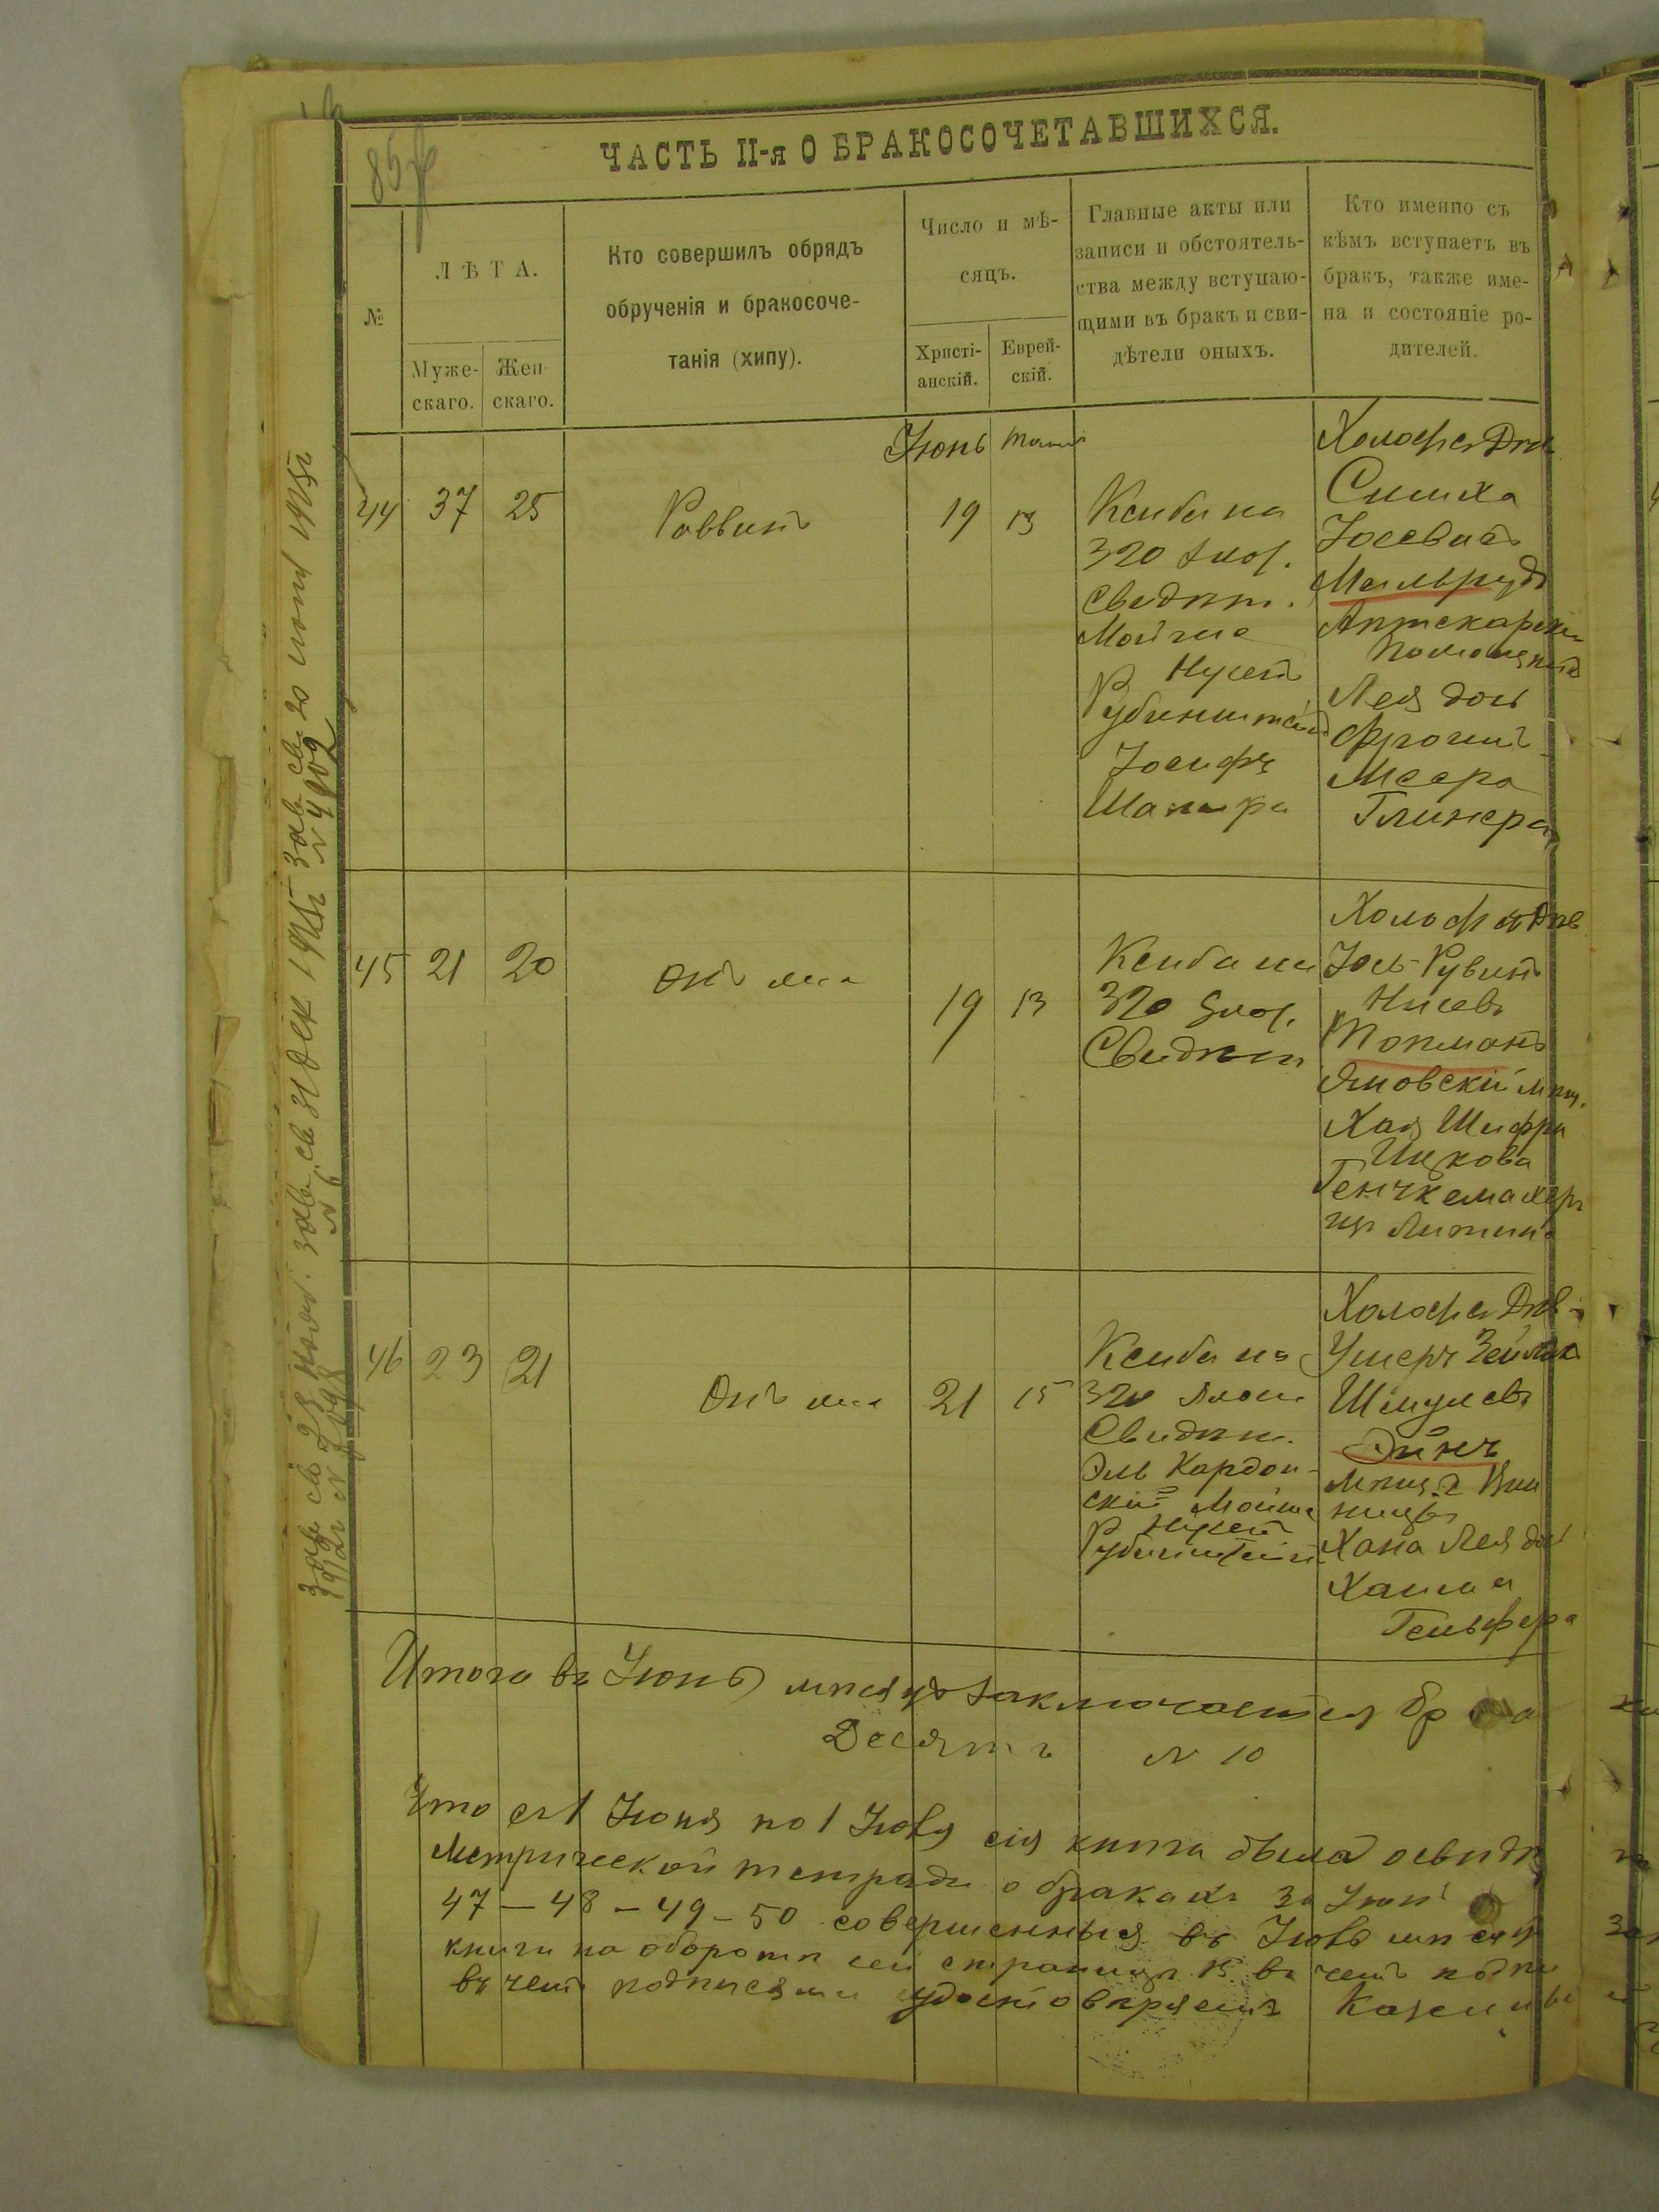 ЧАСТЬ II-я О БРАКОСОЧЕТАВШИХСЯ.
№
ЛѢТА.
Муже-
скаго.
Жен-
скаго.
Кто совершилъ обрядъ
обрученія и бракосоче-
танія (хипу).
Число и мѣ-
сяцъ.
Христі-
анскій.
Еврей-
скій.
Главные акты или
записи и обстоятель-
ства между вступаю-
щими въ бракъ и сви-
дѣтели оныхъ.
Кто именно съ
кѣмъ вступаетъ въ
бракъ, также име-
на и состояніе ро-
дителей.
Іюнь
44 37 25 Раввинъ 19 13
Ксиба на
320 злот.
Свидѣт.
Мойше
Нусенъ
Рубинштейн
Іосифъ
Шапира
Симха
Іосевъ
Мильрудъ
Аптекарскій
помощникъ
Лея дочь
Фроима
Меера
Глинера
45 21 20 Онъ же 19 13
Ксиба на
320 злот.
Свидѣт
Іось-Рувинъ
Топманъ
Яновскій мѣщ.
Хая Шифра
Ицкова
изъ Литина
46 23 21 Онъ же 21 15
Ксиба на
320 злот
Свидѣт.
Эль Кардон-
скій Мойше
Нусенъ
Рубинштейн
Ушеръ Зейлик
Шмулевъ
Эйнъ
мѣщ. г Вин
ницы
Хана Лея доч
Хаима
Гельфера
Итого въ Іюнѣ мѣсяцѣ заключается бр
Десять N 10
Что съ 1 Іюня по 1 Іюля сія книга была освидѣ
Метрической тетради о бракахъ за Іюнь
47 — 48 — 49 — 50 совершенныя въ Іюлѣ мѣсяц
книги на оборотѣ сей страницы 15 въ чемъ подпи
въ чемъ подписями удостовѣряемъ